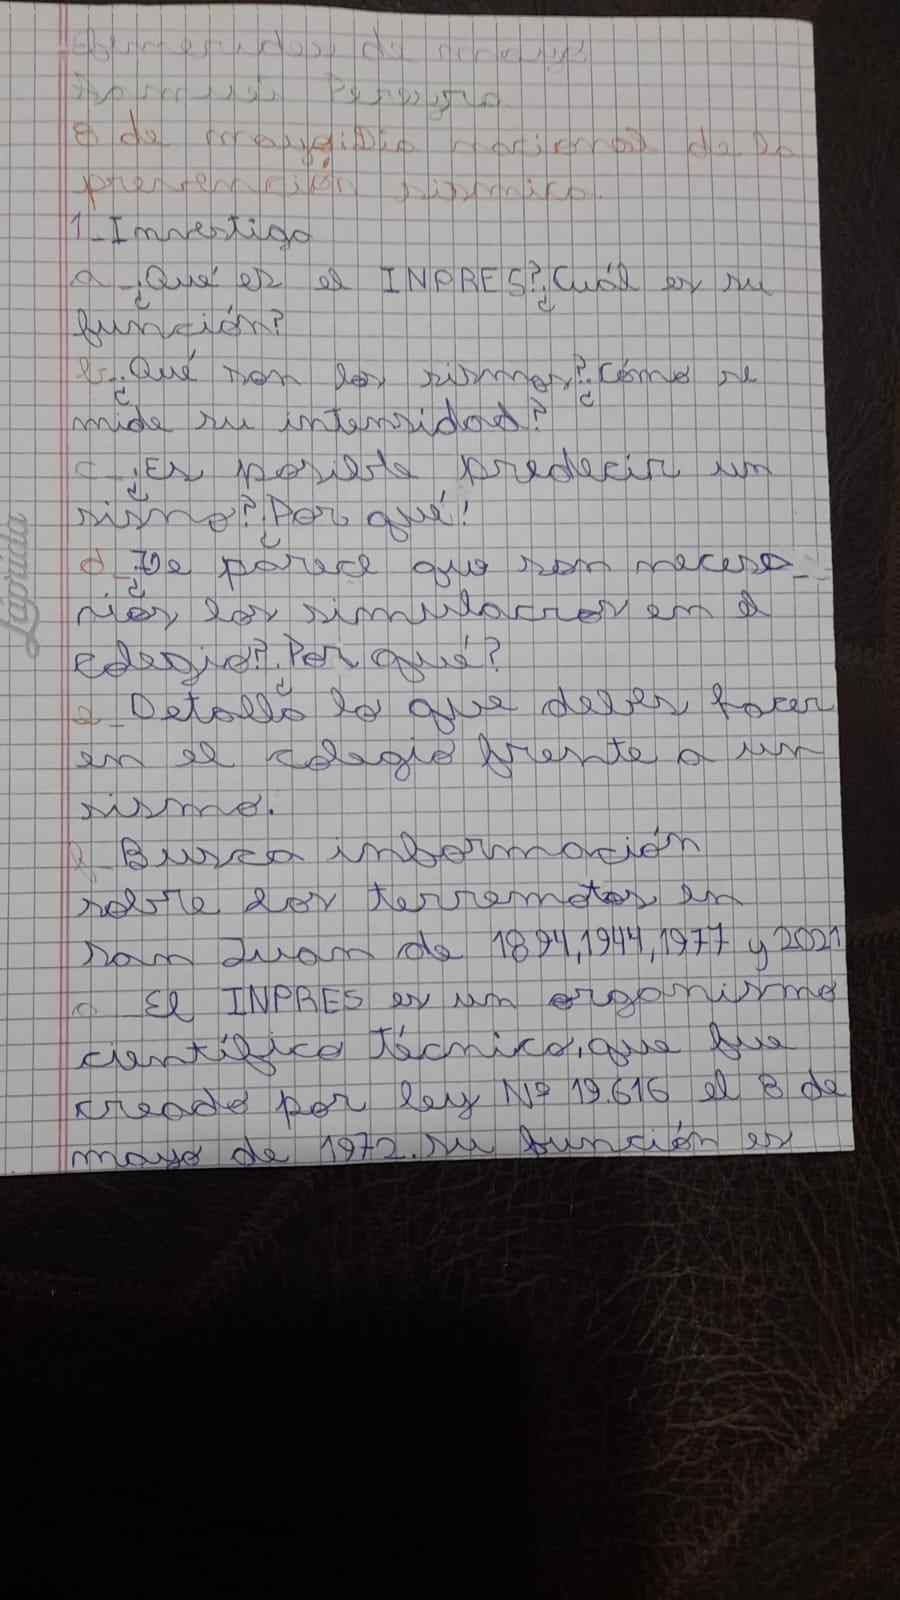 8 de mayo Día nacional de la
prevención sísmica.
1_Investigo
a_¿Qué es el INPRES?¿Cuál es su
función?
b_¿Qué son los sismos?¿Cómo se
mide su intensidad?
c_¿Es posible predecir un
sismo?¿Por qué?
d_¿Te parece que son necesa_
rios los simulacros en el
colegio?¿Por qué?
e_Detalla lo que debes hacer
en el colegio frente a un
sismo.
f_Busca información
sobre los terremotos en
san Juan de 1894,1944,1977 y 2021
a_El INPRES es un organismo
científico técnico,que fue
creado por ley Nº 19.616 el 8 de
mayo de 1972.su función es
Laprida